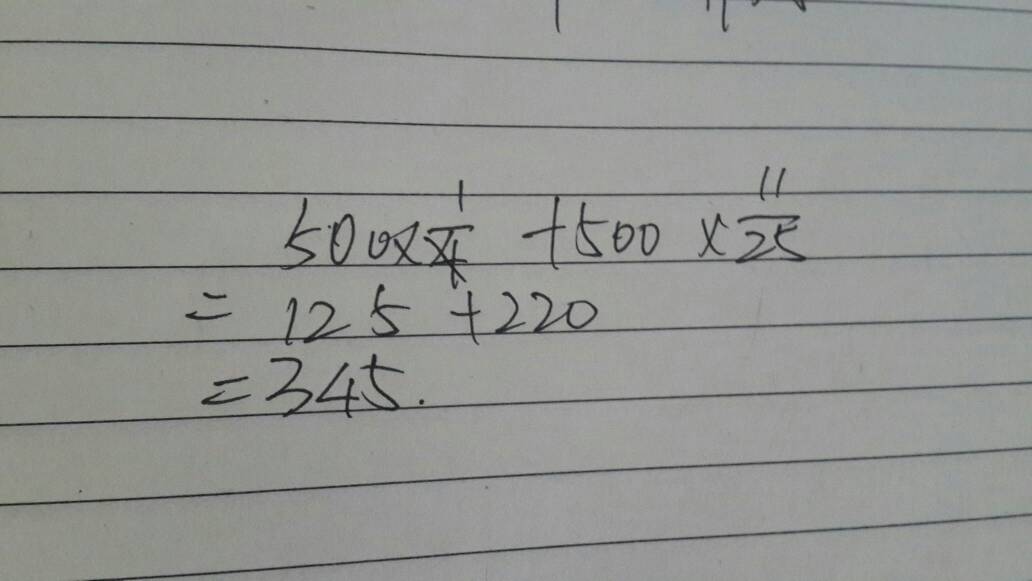 500×1/4 +500×11/25
= 125 +220
=345.